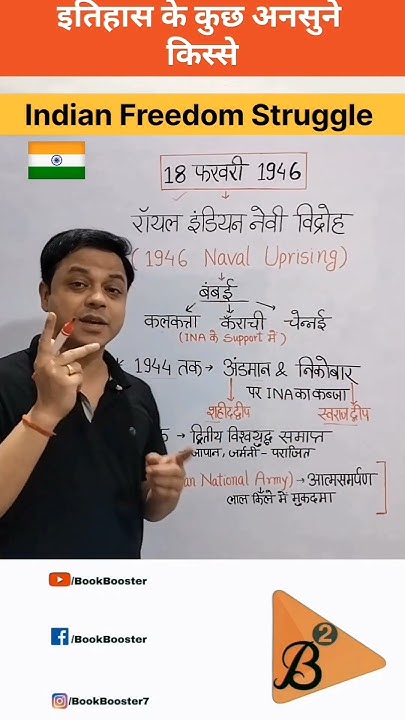 इतिहास के कुछ अनसुने
किस्से
Indian Freedom Struggle
18 फरवरी 1946
रॉयल इंडियन नेवी विद्रोह
(1946 Naval Uprising)
बंबई
कलकत्ता कराँची चेन्नई
(INA के Support में)
* 1944 तक → अंडमान & निकोबार
पर INA का कब्जा
शहीदद्वीप स्वराजद्वीप
→ द्वितीय विश्वयुद्ध समाप्त
जापान, जर्मनी - पराजित
an National Army) → आत्मसमर्पण
लाल किले में मुकदमा
/BookBooster
/BookBooster
/BookBooster7
B2